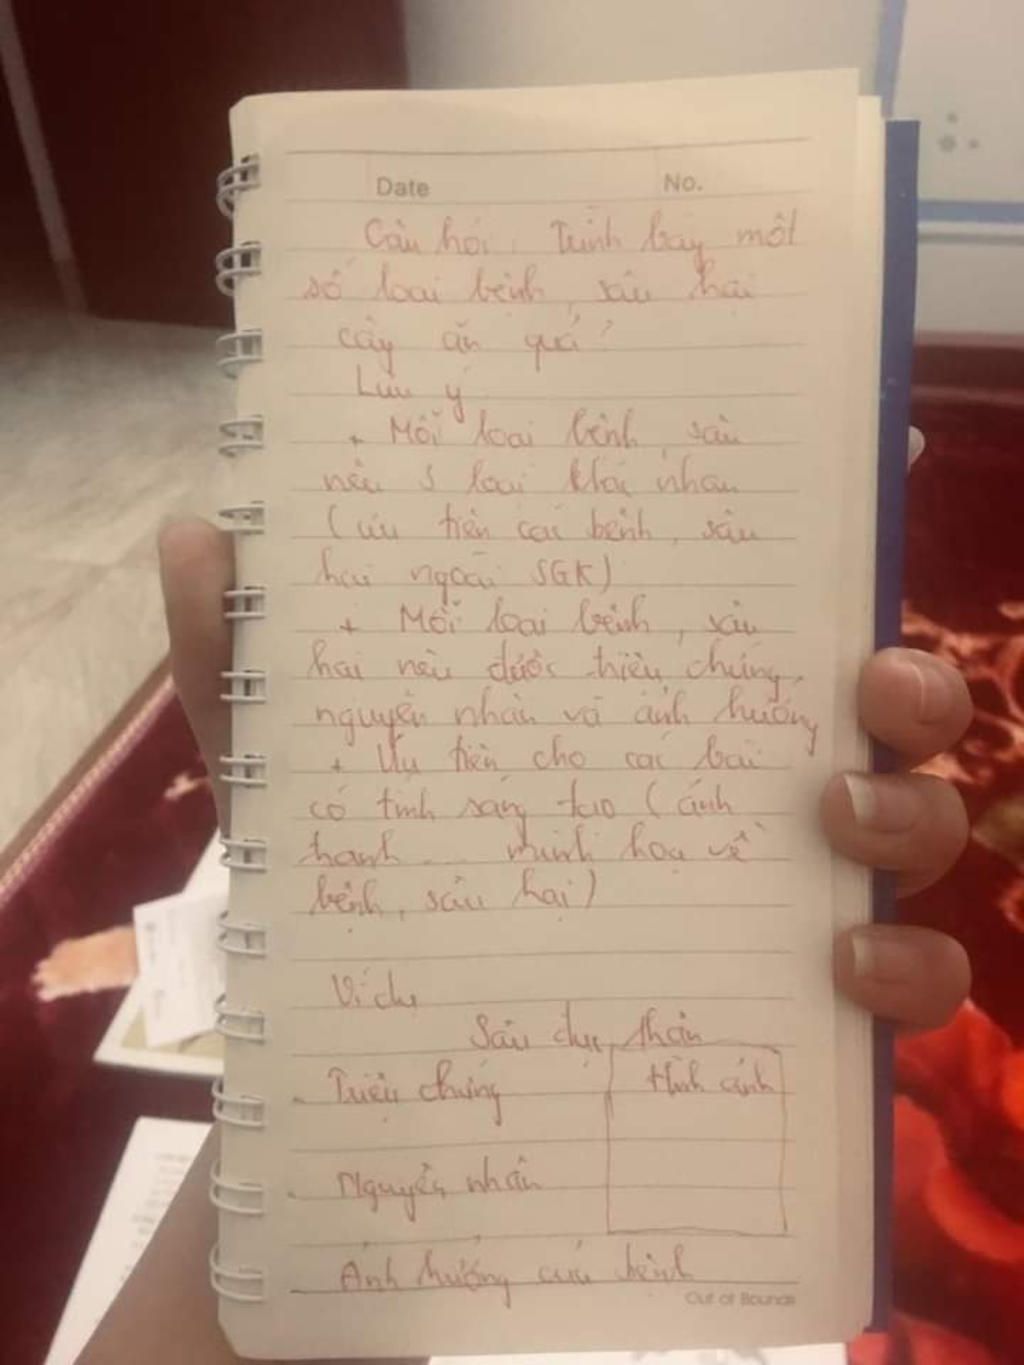 Date No.
Câu hỏi: Trình bày một
số loại bệnh, sâu hại
cây ăn quả?
Lưu ý
+ Mỗi loại bệnh, sâu
nêu 5 loại khác nhau
(ưu tiên các bệnh, sâu
hại ngoài SGK)
+ Mỗi loại bệnh, sâu
hại nêu được triệu chứng,
nguyên nhân và ảnh hưởng
+ Ưu tiên cho các bài
có tính sáng tạo (ảnh
tranh... minh hoạ về
bệnh, sâu hại)
Ví dụ
Sâu đục thân
- Triệu chứng
Hình ảnh
- Nguyên nhân
- Ảnh hưởng của bệnh
Out of Bounds